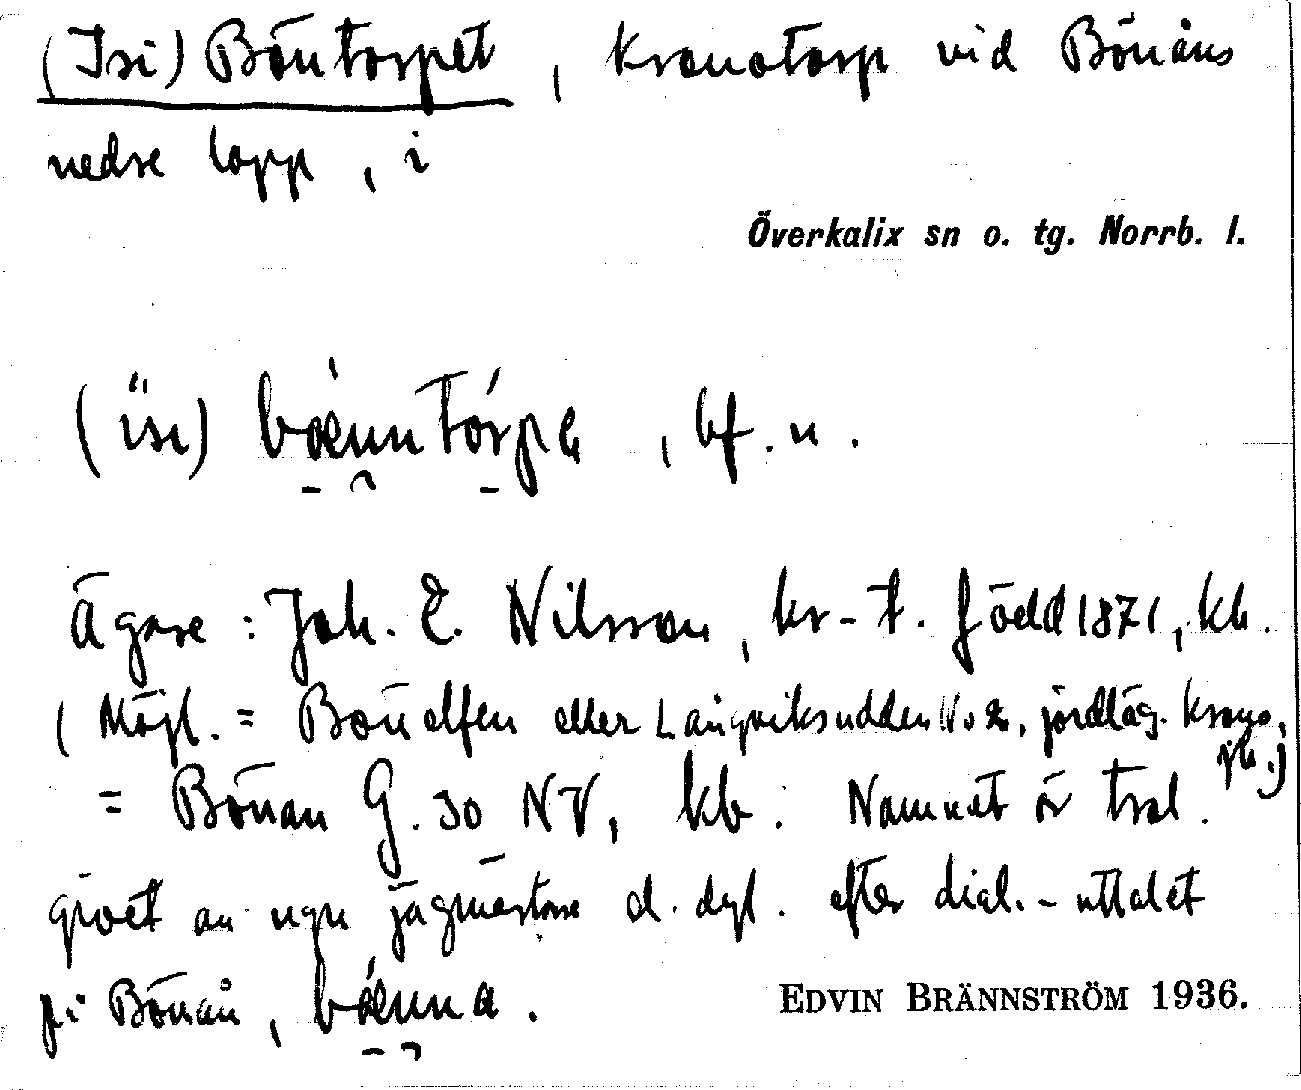 (Isi) Böntorpet, Kronotorp vid Bönåns
nedre lopp, i
Överkalix sn o. tg. Norrb. l.
(isı) bœnntórpe, bf. n.
Ägare: Joh. E. Nilsson, kr-t. född 1871, kb.
(Möjl. = Bönälfen eller Långviksudden No 2, jordläg. krono,
jb.)
= Bönan G. 30 NV, kb. Namnet är trol.
givet av ngn jägmästare d. dyl. efter dial.-uttalet
på Bönån, bœnna.
EDVIN BRÄNNSTRÖM 1936.